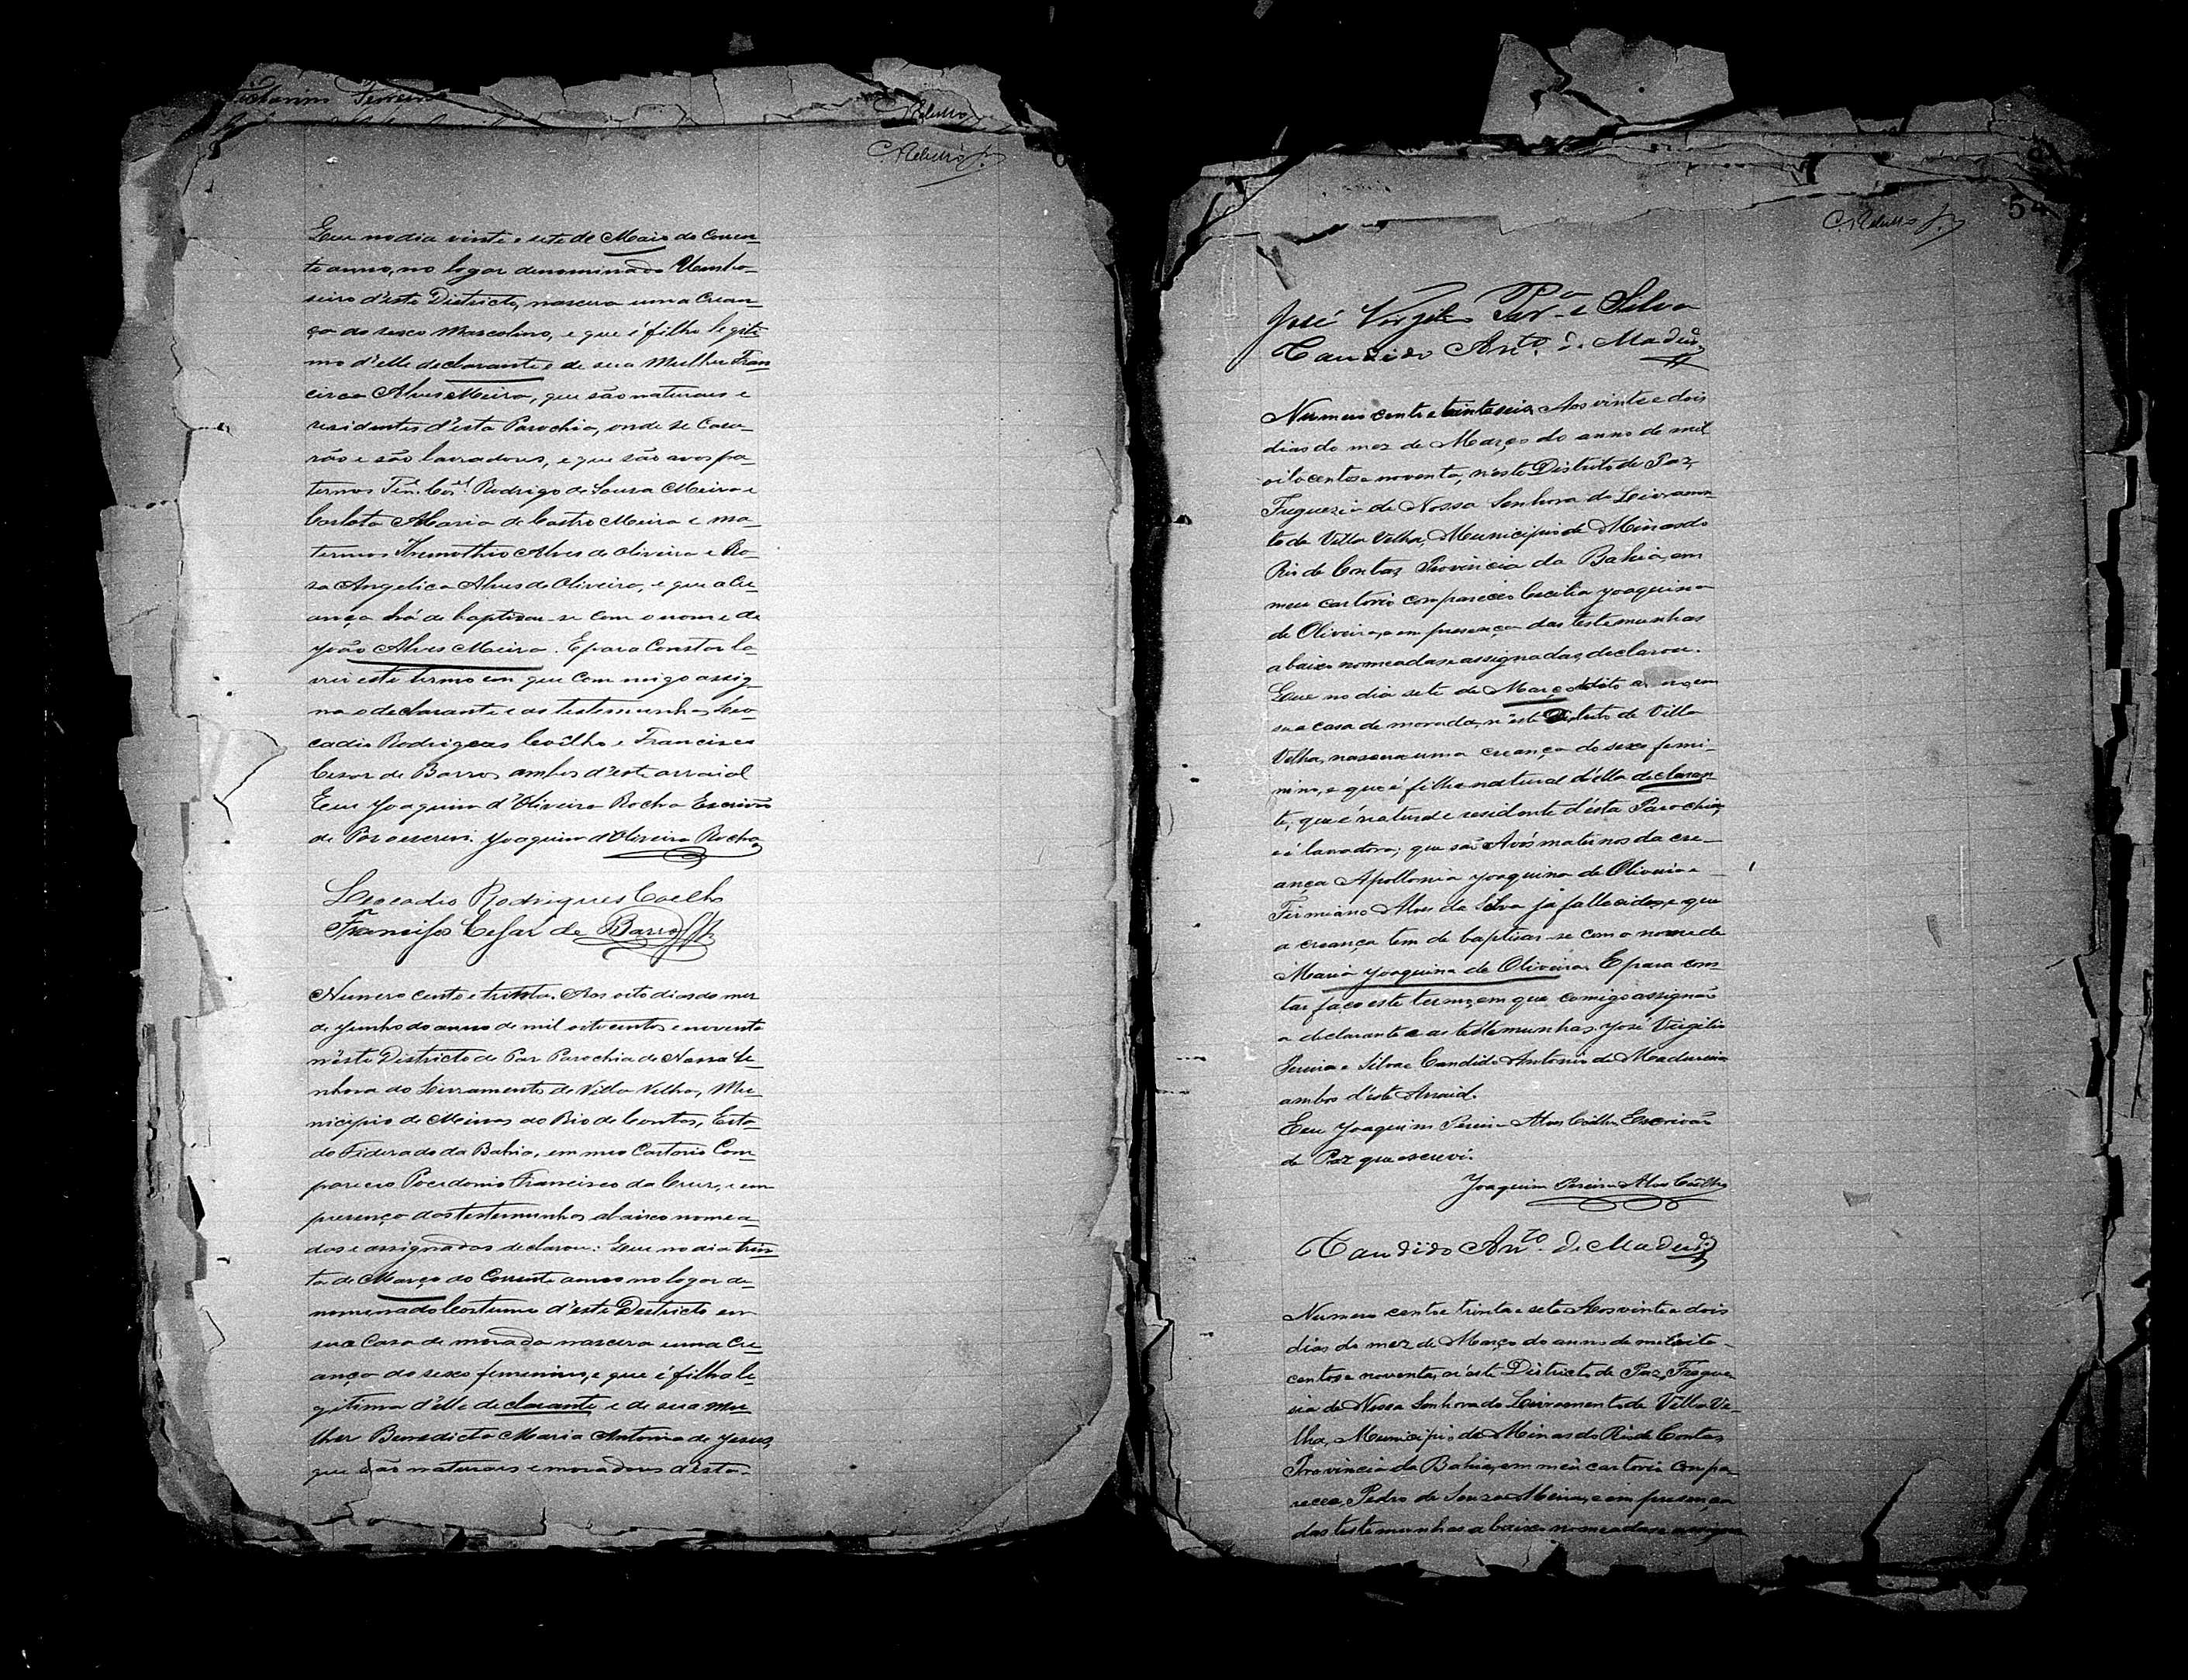 Ribeiro Jr.
Que no dia vinte e sete de Maio do Corren-
te anno, no logar denominado
seiro d'este Districto, nascera uma Crean-
ça do sexo Mascolino, e que é filho legiti-
mo d'elle declarante e de sua Mulher Fran-
cisca Alves Meira, que são naturaes e
residentes d'esta Parochia, onde se Casa-
rão e são lavradores, e que são avos pa-
ternos Ten. Cor.el Rodrigo de Souza Meira e
Carlota Maria de Castro Meira e ma-
ternos Themothio Alves de Oliveira e Ro-
sa Angelica Alves de Oliveira, e que a Cre-
ança há de baptisar-se com o nome de
João Alves Meira. E para Constar la-
vrei este termo em que com migo assig-
na o declarante e as testemunhas Leo-
cadio Rodrigues Coêlho e Francisco
Cesar de Barros ambos d'este arraial
Eeu Joaquim d'Oliveira Rocha Escrivão
de Paz o escrevi. Joaquim d'Oliveira Rocha
Leocadio Rodrigues Coelho
Francisco Cesar de Barros
Numero cento e trinta. Aos oito dias do mez
de Junho do anno de mil oitocentos e noventa
n'este Districto de Paz Parochia de Nossa Se-
nhora do Livramento de Villa Velha, Mu-
nicipio de Minas do Rio de Contas, Esta-
do Fiderado da Bahia, em meo Cartorio Com-
pareceo Pocidonio Francisco da Cruz, e em
presença das testemunhas abaixo nomea-
das e assignadas declarou: Que no dia trin-
ta de Março do Corrente anno no logar de-
nominado Costume d'este Destricto em
sua Casa de morada nascera uma Cre-
ança do sexo feminino, e que é filha le-
gitima d'elle declarante e de sua mu-
lher Benedicta Maria Antonia de Jesus,
que são naturaes e moradores d'esta-
Ribeiro Jr.
José Virgilio Per.a e Silva
Candido Ant.o de Madur.a
Numero cento e trinta seis Aos vinte e dois
dias do mez de Março do anno de mil
oitocentos e noventa, n'este Districto de Paz,
Freguezia de Nossa Senhora do Livramen-
to de Villa Velha, Municipio de Minas do
Rio de Contas Provincia da Bahia, em
meu cartorio compareceo Cecilia Joaquina
de Oliveira, e em presença das testemunhas
abaixo nomeadas e assignadas, declarou.
Que no dia sete de Março dito anno, em
sua casa de morada, n'este Districto de Villa
Velha, nascera uma creança do sexo femi-
nino, e que é filha natural d'ella declaran-
te, que é natural e residente d'esta Parochia,
e é lavradora; que são Avós maternos da cre-
ança Apollonia Joaquina de Oliveira e
Firmiano Alves da Silva já fallecidos, e que
a creança tem de baptisar-se com o nome de
Maria Joaquina de Oliveira. E para cons-
tar faço este termo, em que comigo assignão
a declarante e as testemunhas, José Virgilio
Pereira e Silva e Candido Antonio de Madureira
ambos d'este Arraial.
Eeu Joaquim Pereira Alves Coêlho Escrivão
de Paz que escrevi.
Joaquim Pereira Alves Coêlho
Candido Ant.to de Madur.a
Numero cento e trinta e sete Aos vinte e dois
dias do mez de Março do anno de mil oito-
centos e noventa, n'este Districto de Paz, Fregue-
sia de Nossa Senhora do Livramento de Villa Ve-
lha, Municipio de Minas do Rio de Contas,
Provincia da Bahia, em meu cartorio compa-
receo, Pedro de Souza Meira, e em presença
das testemunhas abaixo nomeadas e assigna